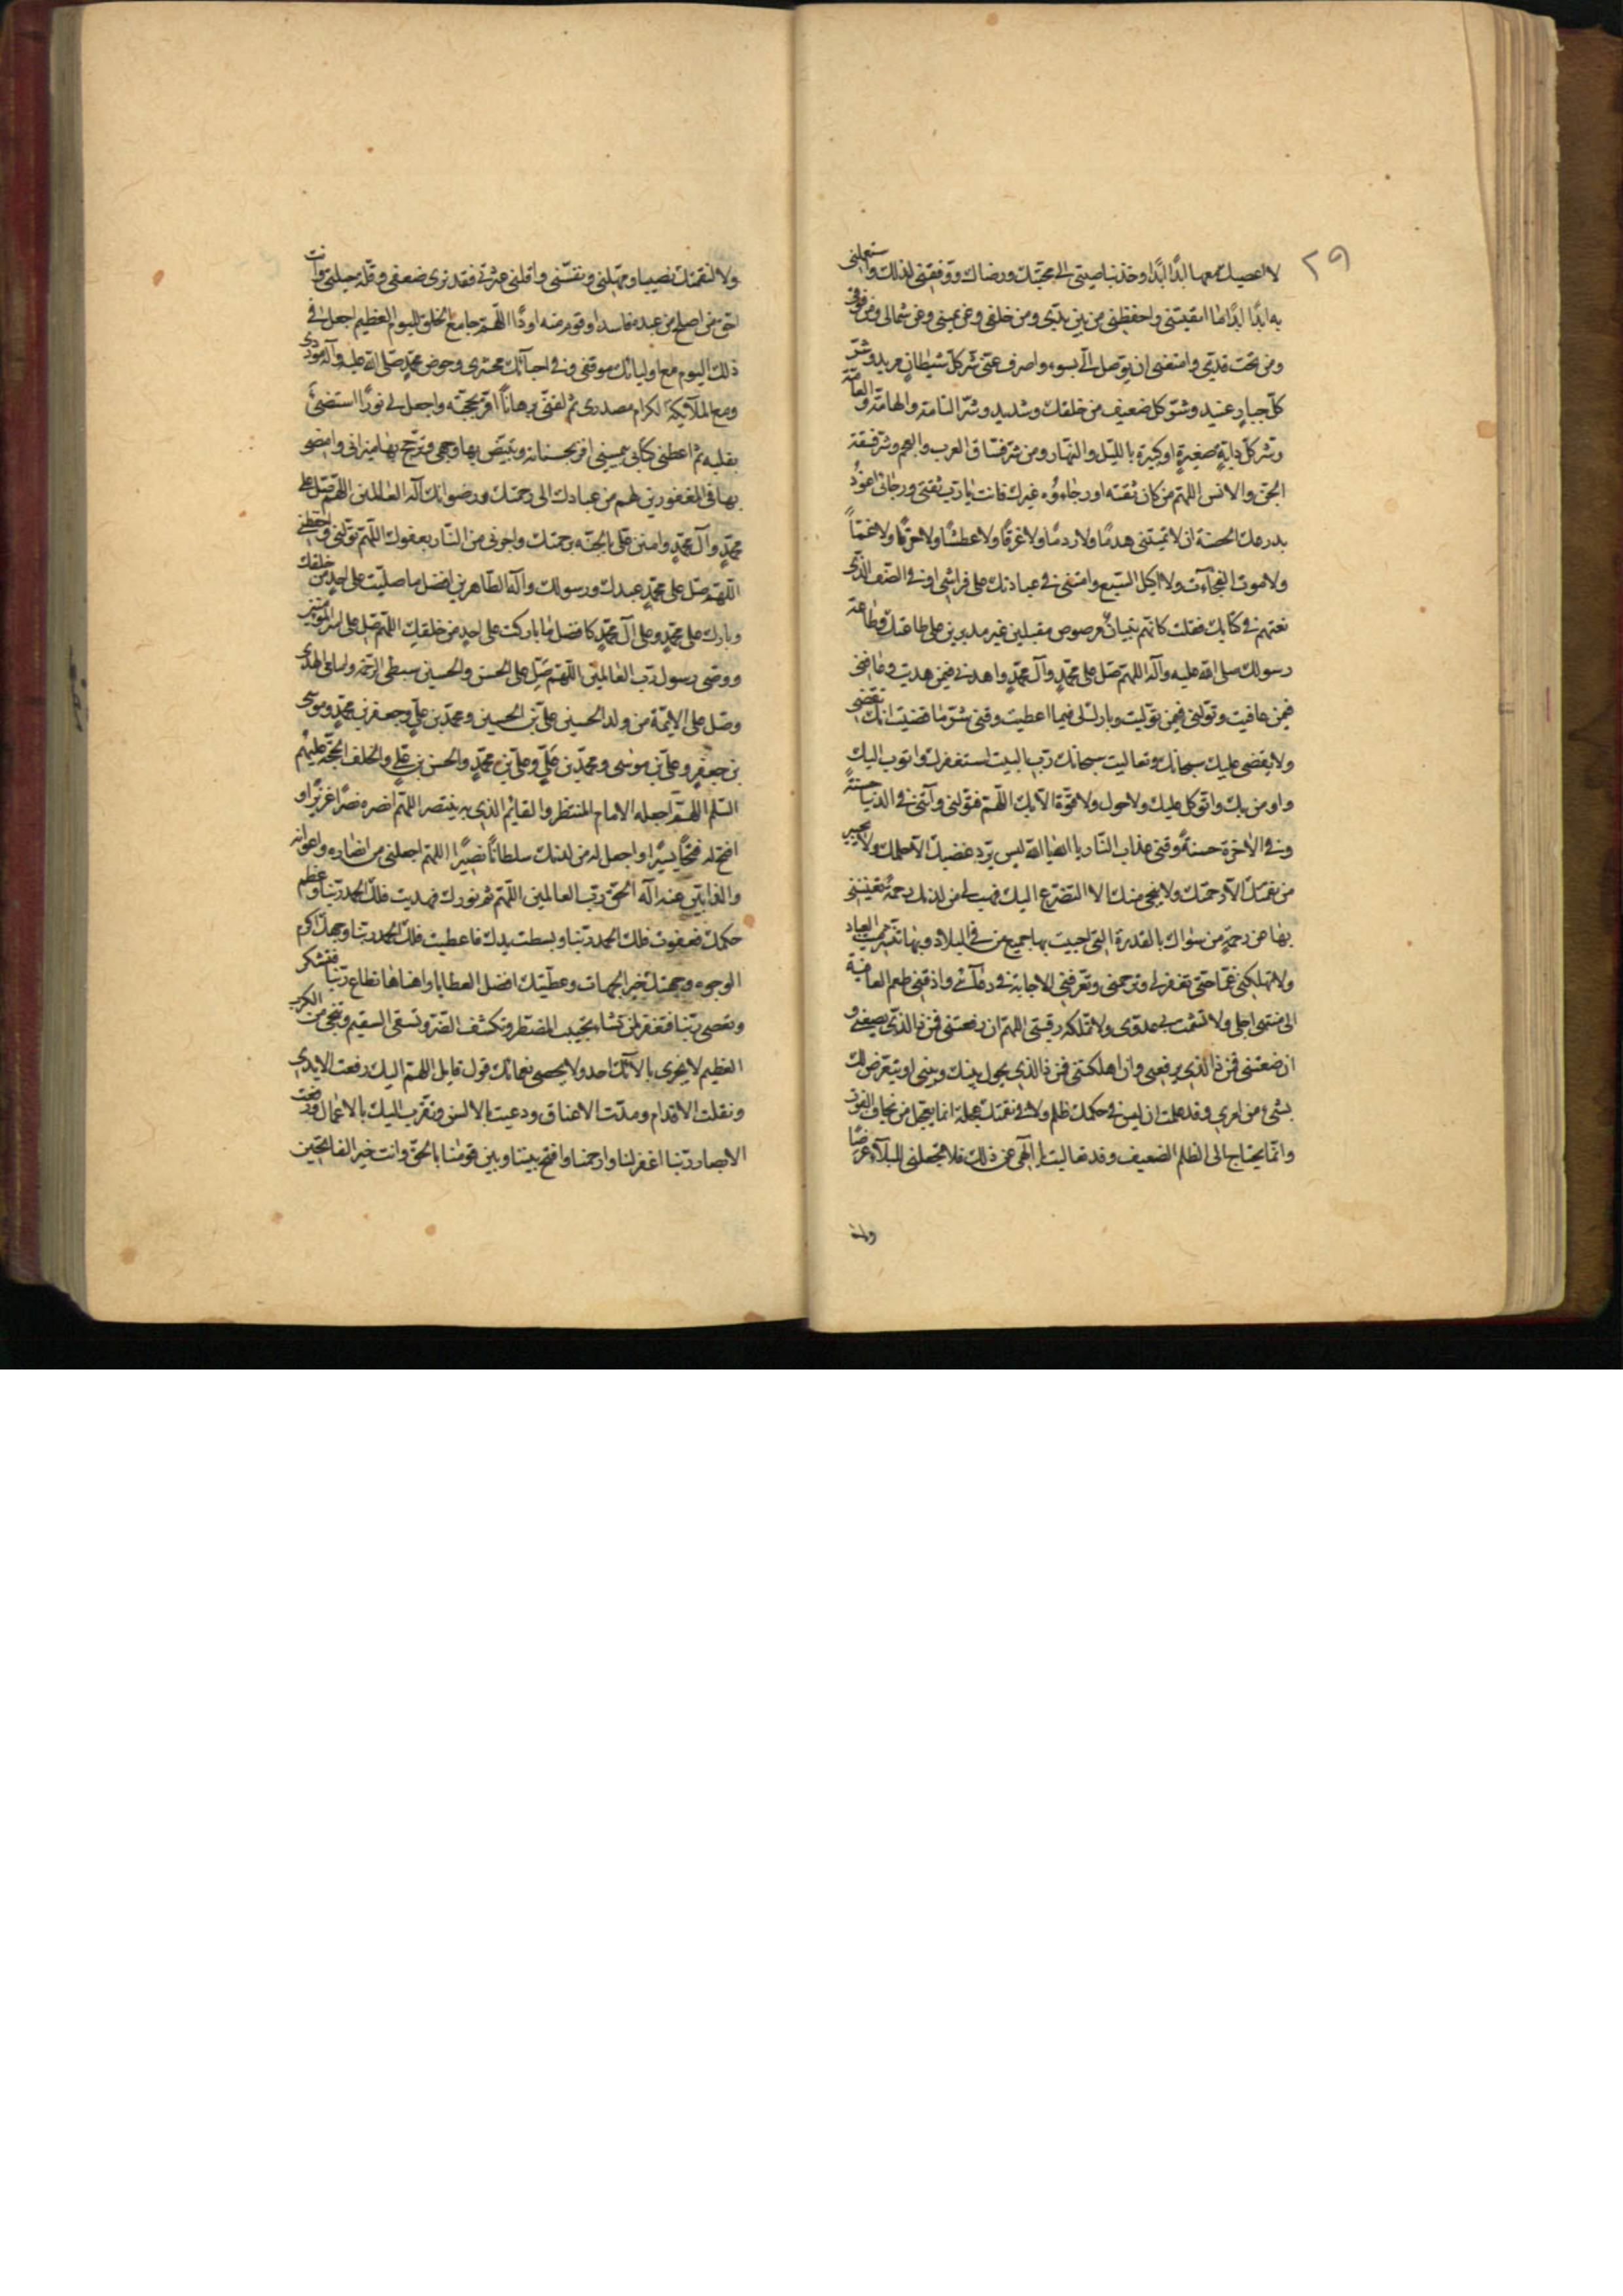 ٢٩
لا اعصيك معها ابدًا ابدًا وخذ بناصيتى الى محبتك ورضاك ووفقنى لذلك واستعملنى
به ابدًا ابدًا ما ابقيتنى واحفظنى من بين يدىّ ومن خلفى وعن يمينى وعن شمالى ومن فوقى
ومن تحت قدمى وامنعنى ان يوصل الىّ بسوء واصرف عنى شر كل شيطانٍ مريد وشرّ
كل جبارٍ عنيد وشرّ كل ضعيف من خلقك وشديد وشرّ السامة والهامة والعامّة
وشر كل دابةٍ صغيرةٍ او كبيرة بالليل والنهار ومن شر فسّاق العرب والعجم وشر فسقة
الجن والانس اللهم من كان ثقته او رجاءوُه غيرك فانت يا رب ثقتى ورجائى اعوذُ
بدرعك الحصينة ان لا تميتنى هدمًا ولا ردمًا ولا غرقًا ولا عطشًا ولا حرقًا ولا غمًّا
ولا موت الفجاءت ولا اكيل السبع وامتنى فى عبادتك على فراشى او فى الصّف الذى
نعتهم فى كتابك فقلت كانهم بنيانٌ مرصوص مقبلين غير مدبرين على طاعتك وطاعة
رسولك صلى الله عليه وآله اللهم صل على محمّدٍ وآل محمّدٍ واهدنى فيمن هديت وعافنى
فيمن عافيت وتولنى فيمن توليت وبارك لى فيما اعطيت وقنى شرّ ما قضيت انك تقضى
ولا يقضى عليك سبحانك وتعاليت سبحانك ربّ البيت استغفرك واتوب اليك
واومن بك واتوكل عليك ولا حول ولا قوّة الّا بك اللهم فقولنى وآتنى فى الدنيا حسنةً
وفى الاخرة حسنةً وقنى عذاب النّار يا الله يا الله ليس يردّ غضبك الّا حلمك ولا يجير
من نقمتك الّا رحمتك ولا ينجى منك الا التضرّع اليك فهب لى من لدنك رحمةً تغنينى
بها عن رحمةٍ من سواك بالقدرة التى احييت بها جميع من فى البلاد وبها تنشر ميت العباد
ولا تهلكنى غمًّا حتى تغفر لى وترحمنى وتعرفنى الاجابة فى دعائى واذقنى طعم العافية
الى منتهى اجلى ولا تشمت بى عدوى ولا تملكه رقبتى اللهم ان رفعتنى فمن ذا الذى يضعنى و
ان وضعتنى فمن ذا الذى يرفعنى وان اهلكتنى فمن ذا الذى يحول بينك وبينى او يتعرّض لك
بشىء من امرى وقد علمت ان ليس فى حكمك ظلم ولا فى نقمتك عجلة انما يعجل من يخاف الفوت
وانما يحتاج الى الظلم الضعيف وقد تعاليت يا الهى عن ذلك فلا تجعلنى للبلآء غرضًا
ولا
ولا لنقمتك نصيبا ومهّلنى ونفّسنى واقلنى عثرتى فقد ترى ضعفى وقلة حيلتى وانت
احق من اصلح من عبده فاسدا وقوم منه اودًا اللهم جامع الخلق لليوم العظيم اجعل فى
ذلك اليوم مع اوليائك موقفى وفى احبائك محشرى وحوض محمّدٍ صلى الله عليه وآله موردى
ومع الملائكة الكرام مصدرى ثم لقنى برهاناً افز بحجته واجعل لى نورًا استضئ
بقلبه ثم اعطنى كتابى بيمينى افز بحسناته وتبيّض بها وجهى وترجّح بها ميزانى وامضى
بها فى المغفورين لهم من عبادك الى رحمتك ورضوانك اله العالمين اللهم صل على
محمّدٍ وآل محمّدٍ وامنن علىّ بالجنة برحمتك واجرنى من النّار بعفوك اللهم تولنى واحفظنى
اللهم صل على محمّدٍ عبدك ورسولك وآله الطاهرين افضل ما صليت على احدٍ من خلقك
وبارك على محمّدٍ وعلى آل محمّدٍ كافضل ما باركت على احدٍ من خلقك اللهم صل على امير المؤمنين
ووصى رسول ربّ العالمين اللهم صل على الحسن والحسين سبطى الرحمة وامامى الهدى
وصل على الائمة من ولد الحسين علىّ بن الحسين ومحمّد بن علىٍّ وجعفر بن محمّدٍ وموسى
بن جعفرٍ وعلىّ بن موسى ومحمّد بن علىٍّ وعلىّ بن محمّدٍ والحسن بن علىٍّ والخلف الحجّة عليهم
السّلم اللهم اجعله الامام المنتظر والقائم الذى به ينتصر اللهم انصره نصرًا عزيزًا و
افتح له فتحًا يسيرًا واجعل له من لدنك سلطانًا نصيرًا اللهم اجعلنى من انصاره واعوانه
والذابّين عنه اله الحق ربّ العالمين اللهم تم نورك فهديت فلك الحمد ربّنا وعظم
حكمك فعفوت فلك الحمد ربّنا وبسطت يدك فاعطيت فلك الحمد ربّنا وجهك اكرم
الوجوه وجهتك خير الجهات وعطيّتك افضل العطايا واهناها تطاع ربّنا فتشكر
وتعصى ربّنا فتغفر لمن تشاء تجيب المضطر وتكشف الضرّ وتشفى السقيم وتنجى من الكرب
العظيم لا يجزى بآلائك احد ولا يحصى نعمائك قول قايل اللهم اليك رفعت الايدى
ونقلت الاقدام ومدّت الاعناق ودعيت بالالسن وتقرّب اليك بالاعمال ورفعت
الابصار ربّنا اغفر لنا وارحمنا وافتح بيننا وبين قومنا بالحقّ وانت خير الفاتحين